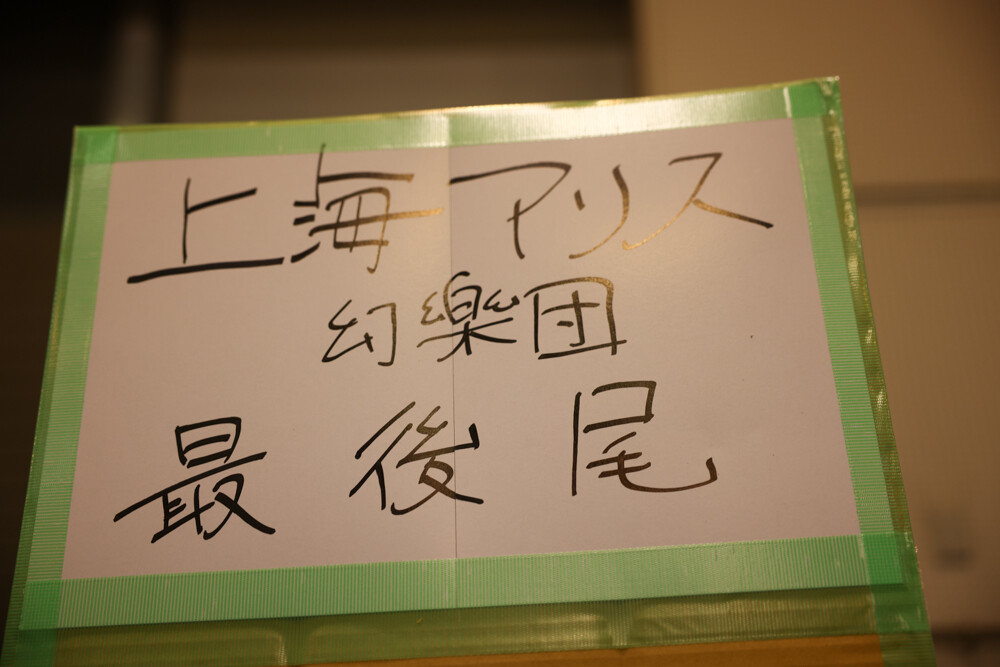 上海アリス
幻樂団
最後尾